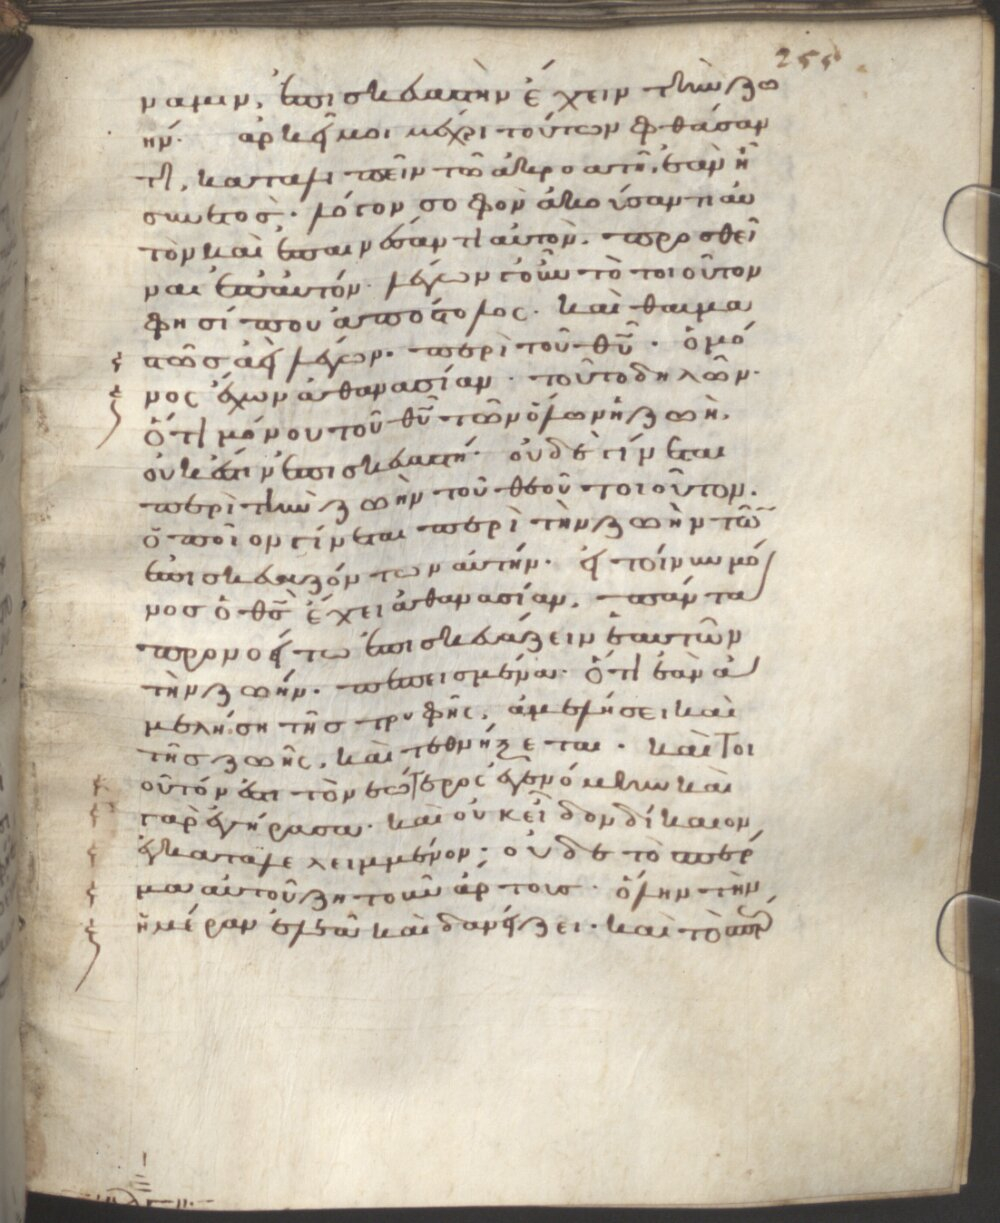 255
ναμιν, ἐπισκεπτὴν ἔχειν τὴν ζω
ήν. ἀρκεῖ μοι μέχρι τούτων φθάσαν
τι, καταλιπεῖν τῷ ἀκροατῇ, ἐὰν ᾖ
συνετὸς. λόγον σοφὸν ἀκούσαντι αὐ
τὸν καὶ ἐπαινέσαντι αὐτὸν, προσθεῖ
ναι ἐπ' αὐτόν. λέγων γοῦν τὸ τοιοῦτον
φησί που ὁ ἀπόστολος. καὶ θαυμα
στῶς ἀεὶ λέγων. περὶ τοῦ θῦ. ὁ μό
νος ἔχων ἀθανασίαν. τοῦτο δηλῶν.
ὅτι μόνου τοῦ θῦ τῶν ὅλων ἡ ζωὴ,
οὐκ ἔστιν ἐπισκεπτή. οὐδὲ γίνεται
περὶ τὴν ζωὴν τοῦ θεοῦ τοιοῦτον.
ὁποῖον γίνεται περὶ τὴν ζωὴν τῶν
ἐπισκεπαζόντων αὐτήν. εἰ τοίνυν μό
νος ὁ θς ἔχει ἀθανασίαν, πάντα
προνοείτω ἐπισκεπάζειν ἑαυτῶν
τὴν ζωήν. πεπεισμένα. ὅτι ἐὰν ἀ
μελήσῃ τῆς τρυφῆς, ἀμελήσει καὶ
τῆς ζωῆς, καὶ τεθνήξεται. καὶ τοι
οῦτόν ἐστι τὸ νεώτερος ἐγενόμην καὶ
γὰρ ἐγήρασα. καὶ οὐκ εἶδον δίκαιον
ἐγκαταλελειμμένον. οὐδὲ τὸ σπέρ
μα αὐτοῦ ζητοῦν ἄρτους. ὅλην τὴν
ἡμέραν ἐλεᾶ καὶ δανείζει. καὶ τὸ